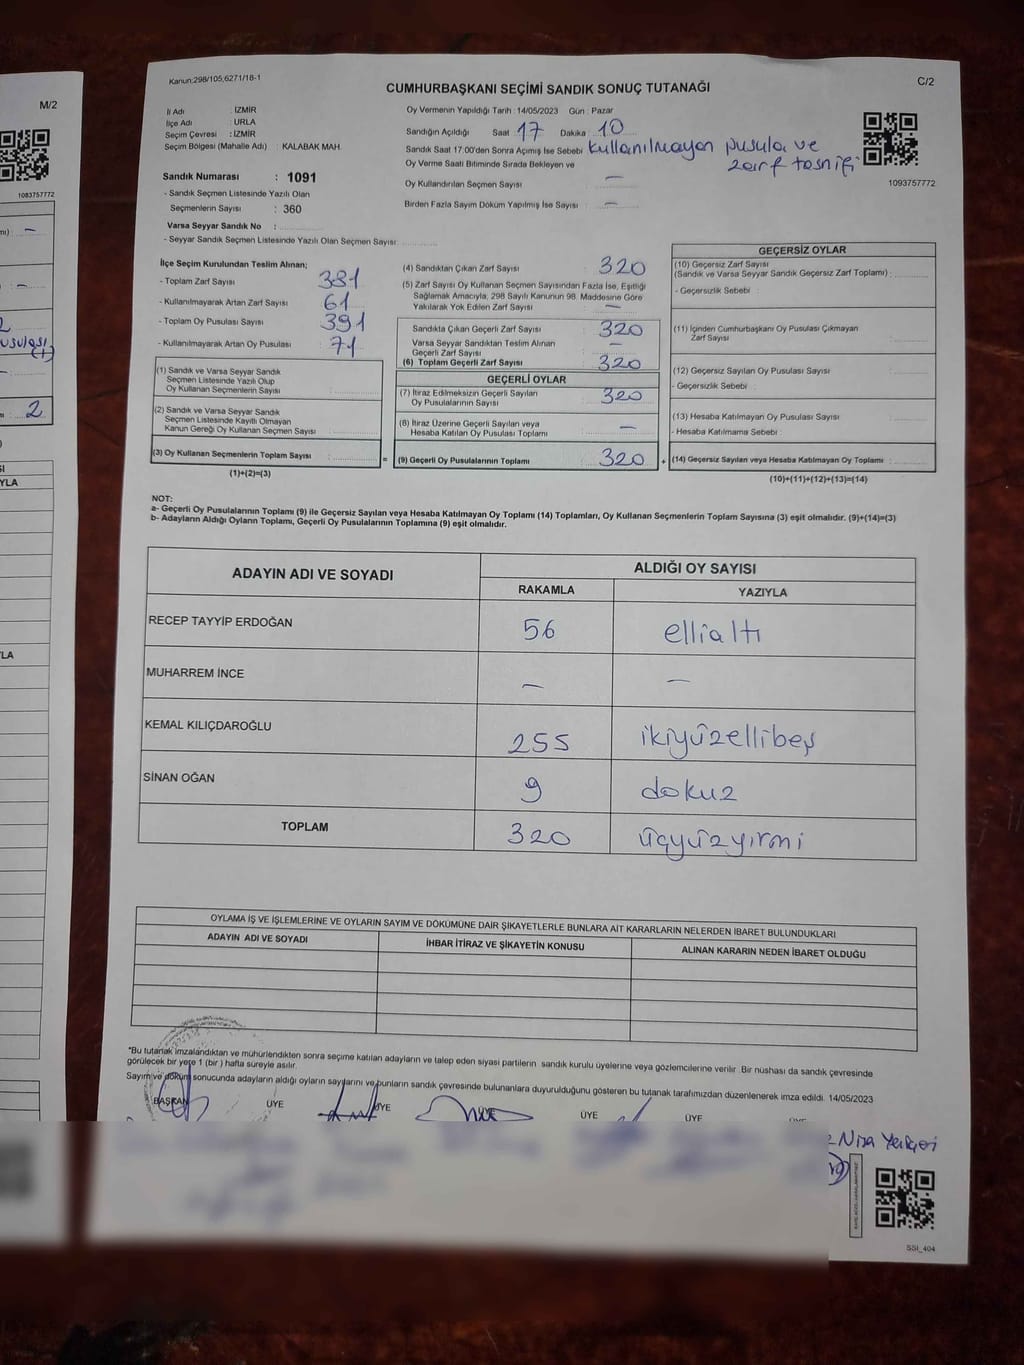 Kanun:298/105,6271/16-1
C/2
M/2
CUMHURBAŞKANI SEÇİMİ SANDIK SONUÇ TUTANAĞI
İl Adı : İZMİR
İlçe Adı : URLA
Seçim Çevresi : İZMİR
Seçim Bölgesi (Mahalle Adı) : KALABAK MAH.
Oy Vermenin Yapıldığı Tarih : 14/05/2023 Gün : Pazar
Sandığın Açıldığı Saat 17 Dakika : 10
Sandık Saat 17.00'den Sonra Açımış İse Sebebi kullanılmayan pusula ve zarf tasnifi
Oy Verme Saati Bitiminde Sırada Bekleyen ve
Oy Kullandırılan Seçmen Sayısı : —
Birden Fazla Sayım Döküm Yapılmış İse Sayısı : —
1083757772
1093757772
Sandık Numarası : 1091
- Sandık Seçmen Listesinde Yazılı Olan
Seçmenlerin Sayısı : 360
Varsa Seyyar Sandık No :
- Seyyar Sandık Seçmen Listesinde Yazılı Olan Seçmen Sayısı:
İlçe Seçim Kurulundan Teslim Alınan;
- Toplam Zarf Sayısı : 381
- Kullanılmayarak Artan Zarf Sayısı : 61
- Toplam Oy Pusulası Sayısı : 391
- Kullanılmayarak Artan Oy Pusulası : 71
(1) Sandık ve Varsa Seyyar Sandık
Seçmen Listesinde Yazılı Olup
Oy Kullanan Seçmenlerin Sayısı :
(2) Sandık ve Varsa Seyyar Sandık
Seçmen Listesinde Kayıtlı Olmayan
Kanun Gereği Oy Kullanan Seçmen Sayısı :
(3) Oy Kullanan Seçmenlerin Toplam Sayısı :
(1)+(2)=(3)
(4) Sandıktan Çıkan Zarf Sayısı : 320
(5) Zarf Sayısı Oy Kullanan Seçmen Sayısından Fazla İse, Eşitliği
Sağlamak Amacıyla, 298 Sayılı Kanunun 98. Maddesine Göre
Yakılarak Yok Edilen Zarf Sayısı : —
Sandıkta Çıkan Geçerli Zarf Sayısı : 320
Varsa Seyyar Sandıktan Teslim Alınan
Geçerli Zarf Sayısı : —
(6) Toplam Geçerli Zarf Sayısı : 320
GEÇERLİ OYLAR
(7) İtiraz Edilmeksizin Geçerli Sayılan
Oy Pusulalarının Sayısı : 320
(8) İtiraz Üzerine Geçerli Sayılan veya
Hesaba Katılan Oy Pusulası Toplamı : —
= (9) Geçerli Oy Pusulalarının Toplamı : 320
GEÇERSİZ OYLAR
(10) Geçersiz Zarf Sayısı
(Sandık ve Varsa Seyyar Sandık Geçersiz Zarf Toplamı) :
- Geçersizlik Sebebi :
(11) İçinden Cumhurbaşkanı Oy Pusulası Çıkmayan
Zarf Sayısı :
(12) Geçersiz Sayılan Oy Pusulası Sayısı :
- Geçersizlik Sebebi :
(13) Hesaba Katılmayan Oy Pusulası Sayısı :
- Hesaba Katılmama Sebebi :
+ (14) Geçersiz Sayılan veya Hesaba Katılmayan Oy Toplamı :
(10)+(11)+(12)+(13)=(14)
NOT:
a- Geçerli Oy Pusulalarının Toplamı (9) ile Geçersiz Sayılan veya Hesaba Katılmayan Oy Toplamı (14) Toplamları, Oy Kullanan Seçmenlerin Toplam Sayısına (3) eşit olmalıdır. (9)+(14)=(3)
b- Adayların Aldığı Oyların Toplamı, Geçerli Oy Pusulalarının Toplamına (9) eşit olmalıdır.
ADAYIN ADI VE SOYADI
ALDIĞI OY SAYISI
RAKAMLA
YAZIYLA
RECEP TAYYİP ERDOĞAN 56 ellialtı
MUHARREM İNCE — —
KEMAL KILIÇDAROĞLU 255 ikiyüzellibeş
SİNAN OĞAN 9 dokuz
TOPLAM 320 üçyüzyirmi
OYLAMA İŞ VE İŞLEMLERİNE VE OYLARIN SAYIM VE DÖKÜMÜNE DAİR ŞİKAYETLERLE BUNLARA AİT KARARLARIN NELERDEN İBARET BULUNDUKLARI
ADAYIN ADI VE SOYADI
İHBAR İTİRAZ VE ŞİKAYETİN KONUSU
ALINAN KARARIN NEDEN İBARET OLDUĞU
*Bu tutanak imzalandıktan ve mühürlendikten sonra seçime katılan adayların ve talep eden siyasi partilerin sandık kurulu üyelerine veya gözlemcilerine verilir. Bir nüshası da sandık çevresinde
görülecek bir yere 1 (bir) hafta süreyle asılır.
Sayım ve döküm sonucunda adayların aldığı oyların sayılarını ve bunların sandık çevresinde bulunanlara duyurulduğunu gösteren bu tutanak tarafımızdan düzenlenerek imza edildi. 14/05/2023
BAŞKAN ÜYE ÜYE ÜYE ÜYE ÜYE ÜYE
Nisa
SSI_404